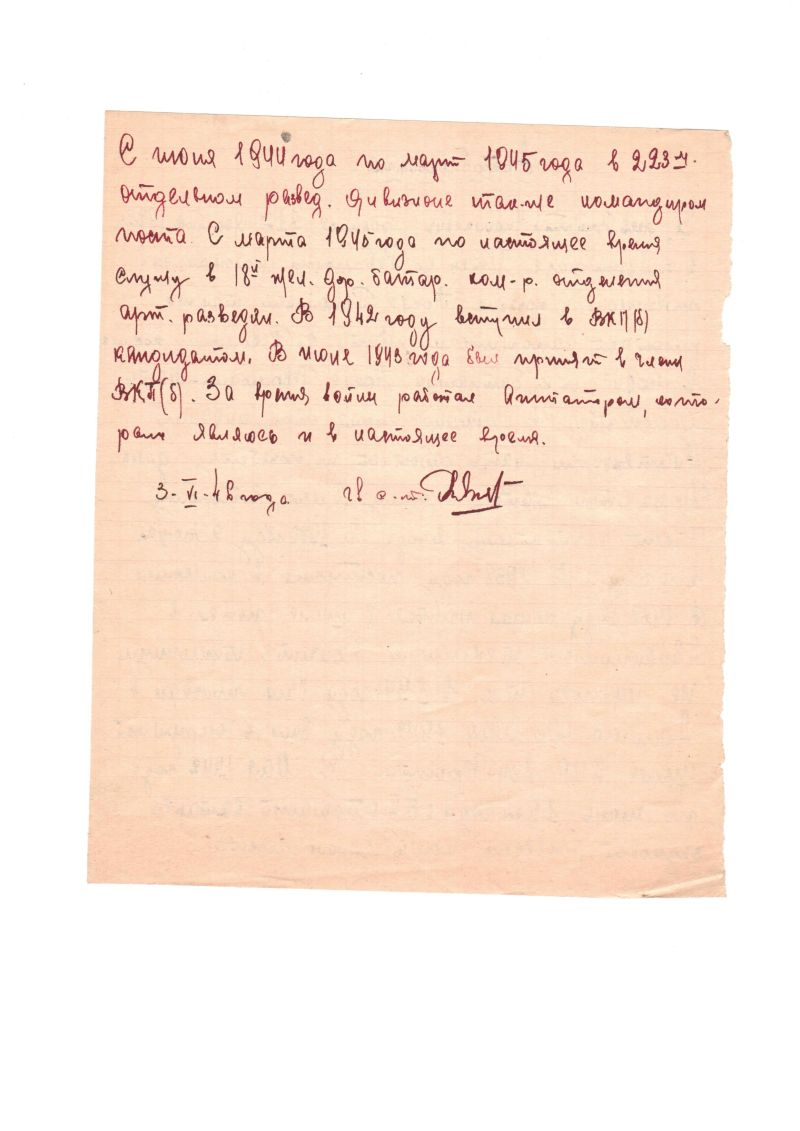 С июня 1944 года по март 1945 года в 223-м
отдельном развед. дивизионе так-же командиром
поста. С марта 1945 года по настоящее время
служу в 18й жел. дор. батар. ком-р. отделения
арт. разведки. В 1942 году вступил в ВКП(б)
кандидатом. В июне 1943 года был принят в члены
ВКП(б). За время войны работал Агитатором, кото-
рым являюсь и в настоящее время.
3-VI-46 года гв с-т.